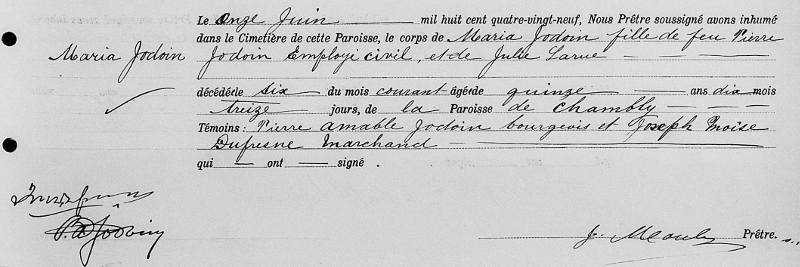 Le onze Juin mil huit cent quatre-vingt-neuf, Nous Prêtre soussigné avons inhumé
dans le Cimetière de cette Paroisse, le corps de Maria Jodoin fille de feu Pierre
Maria Jodoin
Jodoin Employé civil, et de Julie Larue
décédée le six du mois courant âgée de quinze ans dix mois
treize jours, de la Paroisse de Chambly
Témoins: Pierre amable Jodoin bourgeois et Joseph Moise
Dufresne Marchand
qui ont signé.
P. A. Jodoin
Prêtre.